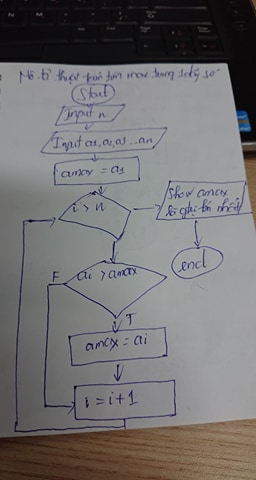 Mô tả thuật toán tìm max trong 1 dãy số
Start
Input n
Input a1, a2, a3 ... an
amax = a1
i > n
Show amax
là giá trị lớn nhất
end
F
ai > amax
T
amax = ai
i = i + 1